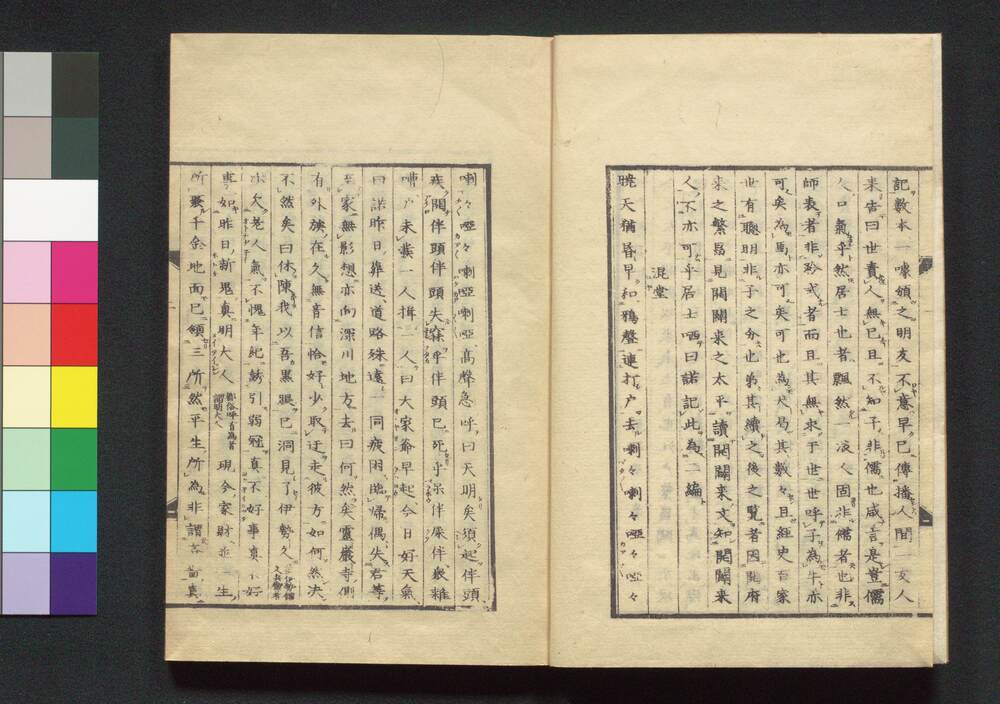 記數本一噱頒之明友不意早已傳播人間一友人
来告曰世責人無已且不知子非儒也咸言是豈儒
人口氣乎然居士也者飄然一浪人固非儒者也非
師表者非矜式者而且其無求于世世呼子為牛亦
可矣為馬亦可矣可也為尺局其數々且經史百家
世有聰明非子之分也弟其續之後之覧者因開府
来之繁昌見開闢来之太平讀開闢来文知開闢来
人不亦可乎居士哂曰諾記此為二編
混堂
曉天猶昏早和鴉聲連打户去喇々喇々啞々啞々
喇々啞々喇啞喇啞高聲急呼曰天明矣須起伴頭
疾開伴頭伴頭失寐乎伴頭已死乎呆伴廝伴衆雜
嘈户未發一人揖二人曰大家爺早起今日好天氣
曰諾昨日葬送道路殊遠一同疲困臨歸偶失君等
至家無影想亦向深川地方去曰何然矣靈巖寺側
有外族在久無音信恰好少取迂走彼方如何然决
不然矣曰休陳我以吾黒眼已洞見了伊勢久
久老人氣不愧年紀誘引弱冠真不好事真不好
事如昨日新鬼真明大人現今家財並一生
所聚千金地面已領三所然平生所為非謂吝嗇真